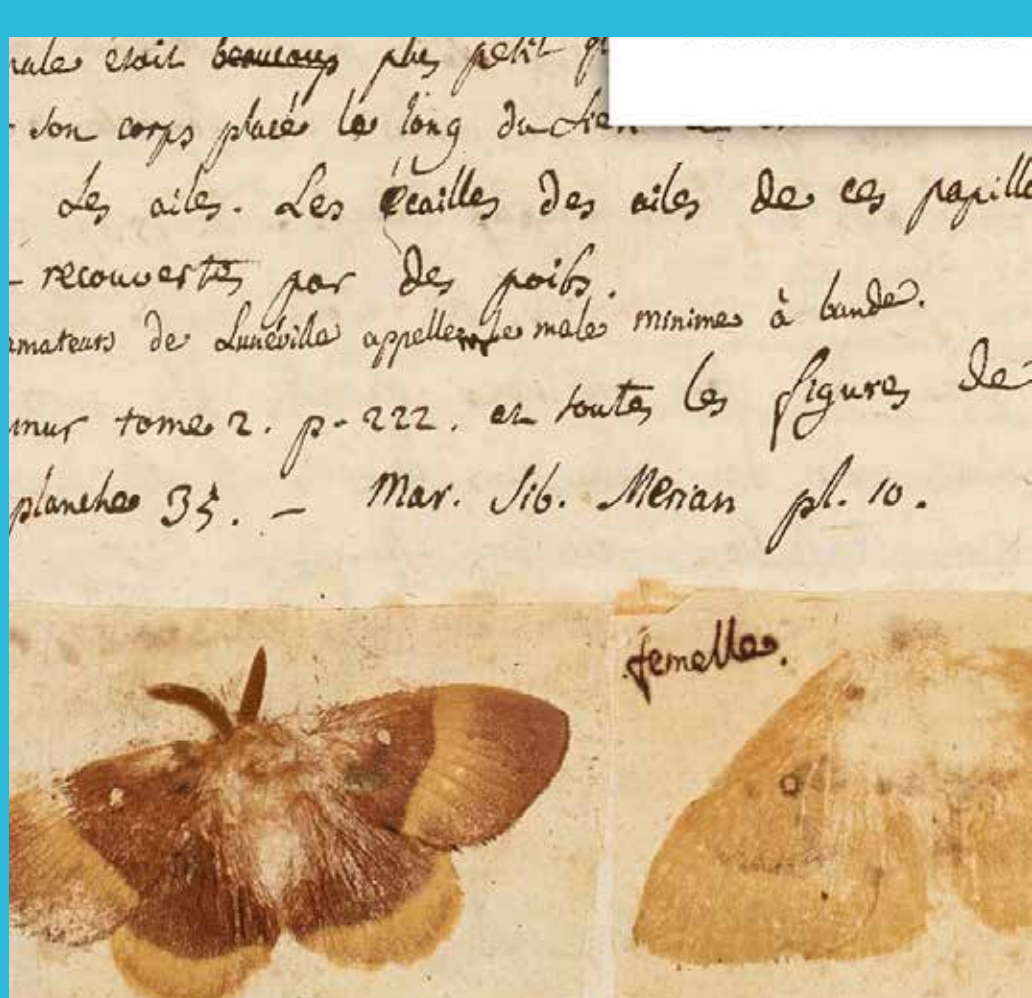 male étoit beaucoup plus petit
son corps placé le long du sien
des ailes. Les écailles des ailes de ces papill
recouvertes par des poils.
amateurs de Lunéville appellent le male minime à bande.
mur tome 2. p. 222. et toutes les figures de
planche 35. — Mar. Sib. Merian pl. 10.
femelle.